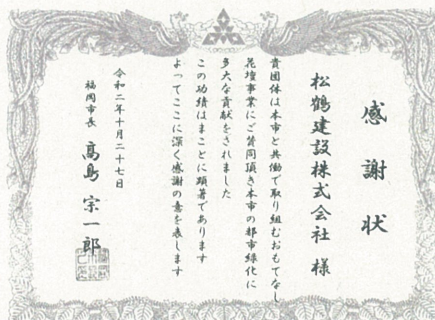 感謝状
松鶴建設株式会社 様
貴団体は本市と共働で取り組むおもてなし
花壇事業にご賛同頂き本市の都市緑化に
多大な貢献をされました
この功績はまことに顕著であります
よってここに深く感謝の意を表します
令和二年十月二十七日
福岡市長 高島 宗一郎